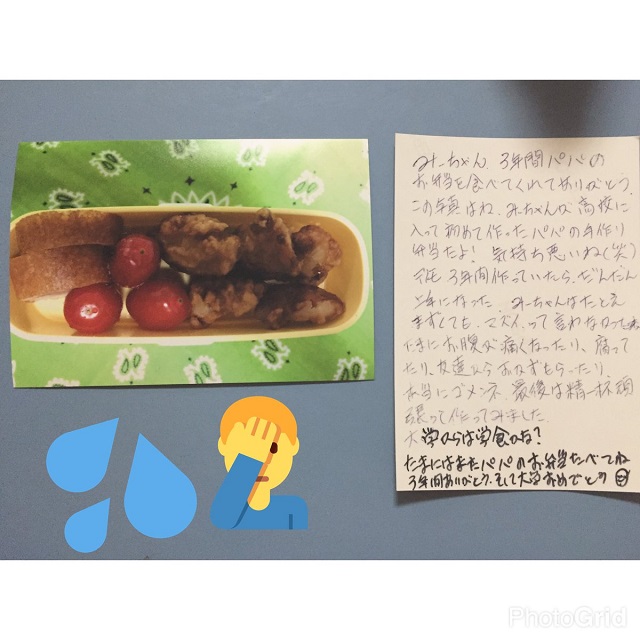 みーちゃん 3年間パパの
お弁当を食べてくれてありがとう
この写真はね、みーちゃんが高校に
入って初めて作ったパパの手作り
弁当だよ! 気持ち悪いね(笑)
でも 3年間作っていたら、だんだん
上手になった。みーちゃんはたとえ
まずくても、マズイって言わなかった
たまにお腹が痛くなったり、腐って
たり、友達からおかずもらったり、
本当にゴメンネ。最後は精一杯頑
張って作ってみました。
大学からは学食かな?
たまにはまたパパのお弁当たべてね
3年間ありがとう。そして大学おめでとう
PhotoGrid